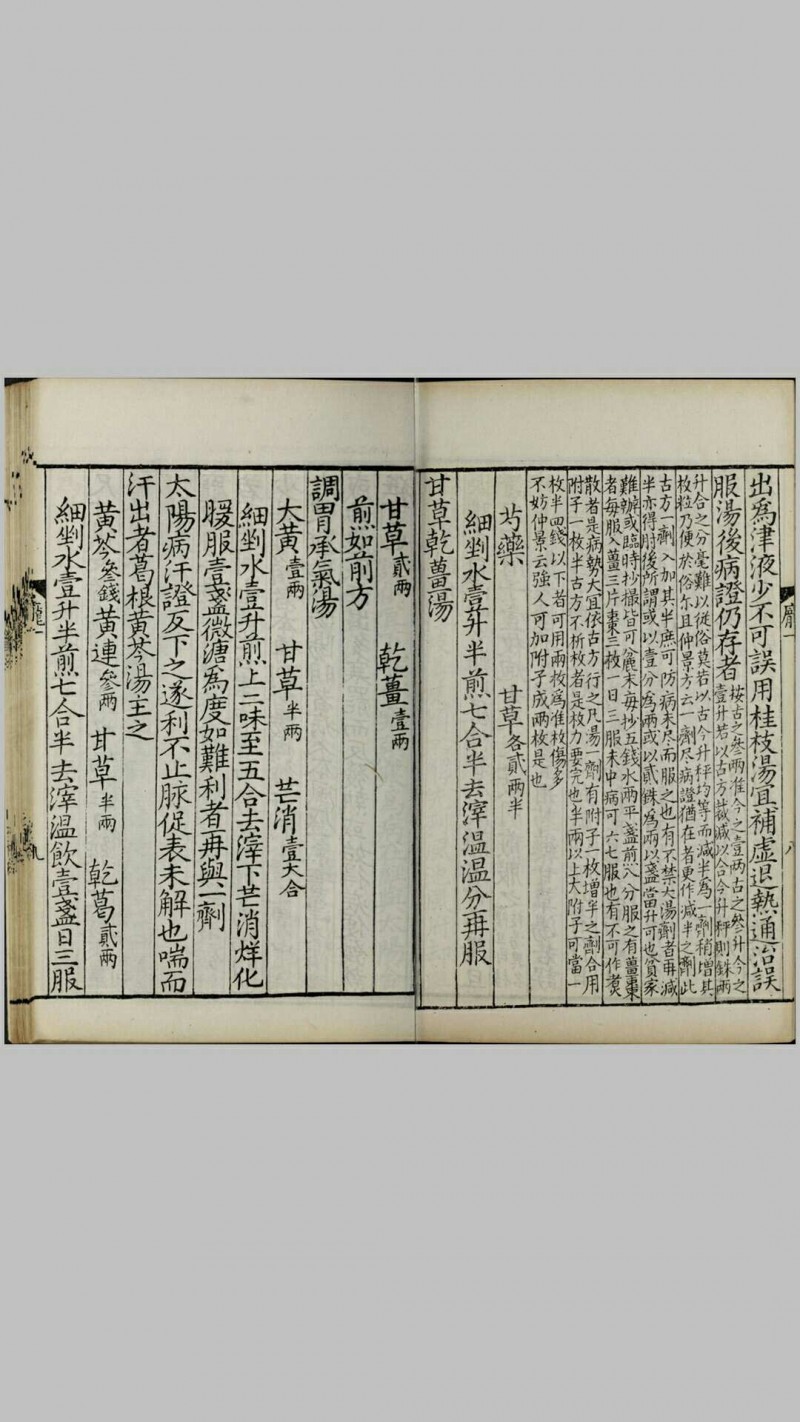 出爲津液少不可誤用桂枝湯宜補虛退熱通治誤
服湯後病證仍存者
按古之叄兩准今之壹兩古之叄升今之
壹升若以古方裁減以合今升秤則銖兩
升合之分毫難以從俗莫若以古今升秤均等而減半為一劑稍增其
枚粒乃便於俗尓且仲景方云一劑尽病證猶在者更作減半之劑此
古方一劑入加其半庶可防病未尽而服之也有不禁大湯劑者再減
半亦得肘後所謂或以壹分為兩或以貳銖為兩以盞當升可也貧家
難辦或臨時抄撮皆可麄末每抄五錢水兩平盞煎八分服之有薑棗
者每服入薑三片棗三枚一日三服未中病可六七服也有不可作煑
散者是病勢大宜依古方行之凡湯一劑有附子一枚增半之劑合用
附子一枚半古方不析枚者是枚力要完也半兩以上大附子可當一
枚半四錢以下者可用兩枚為准枚傷多
不妨仲景云強人可加附子成兩枚是也
芍藥 甘草各貳兩半
細剉水壹升半煎七合半去滓温温分再服
甘草乾薑湯
甘草貳兩 乾薑壹兩
煎如前方
調胃承氣湯
大黃壹兩 甘草半兩 芒消壹大合
細剉水壹升煎上二味至五合去滓下芒消烊化
暖服壹盞微溏爲度如難利者再與一劑
太陽病汗證反下之遂利不止脉促表未解也喘而
汗出者葛根黃芩湯主之
黃芩叄錢 黃連叄兩 甘草半兩 乾葛貳兩
細剉水壹升半煎七合半去滓温飲壹盞日三服